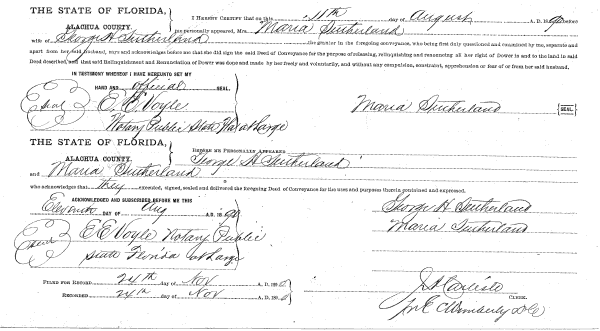 THE STATE OF FLORIDA,
ALACHUA COUNTY.
I HEREBY CERTIFY that on this 11th day of August A. D. 189 before
me personally appeared, Mrs. Maria Sutherland
wife of George H Sutherland the grantor in the foregoing conveyance, who being first duly questioned and examined by me, separate and
apart from her said husband, says and acknowledges before me that she did sign the said Deed of Conveyance for the purpose of releasing, relinquishing and renouncing all her right of Dower in and to the land in said
Deed described, and that said Relinquishment and Renunciation of Dower was done and made by her freely and voluntarily, and without any compulsion, constraint, apprehension or fear of or from her said husband.
IN TESTIMONY WHEREOF I HAVE HEREUNTO SET MY
HAND AND official SEAL.
Seal E. E Voyle
Notary Public State Fla at Large
Maria Sutherland SEAL
THE STATE OF FLORIDA,
ALACHUA COUNTY.
BEFORE ME PERSONALLY APPEARED George H Sutherland
and Maria Sutherland
who acknowledges that they executed, signed, sealed and delivered the foregoing Deed of Conveyance for the uses and purposes therein contained and expressed.
ACKNOWLEDGED AND SUBSCRIBED BEFORE ME THIS
Eleventh DAY OF Aug A.D. 18
George H Sutherland
Maria Sutherland
Seal E E Voyle Notary Public
State Florida at Large
FILED FOR RECORD 24th day of Nov A.D. 189
RECORDED 24th day of Nov A.D. 189
J H Carlisle CLERK.
pr E C Wimberly D C